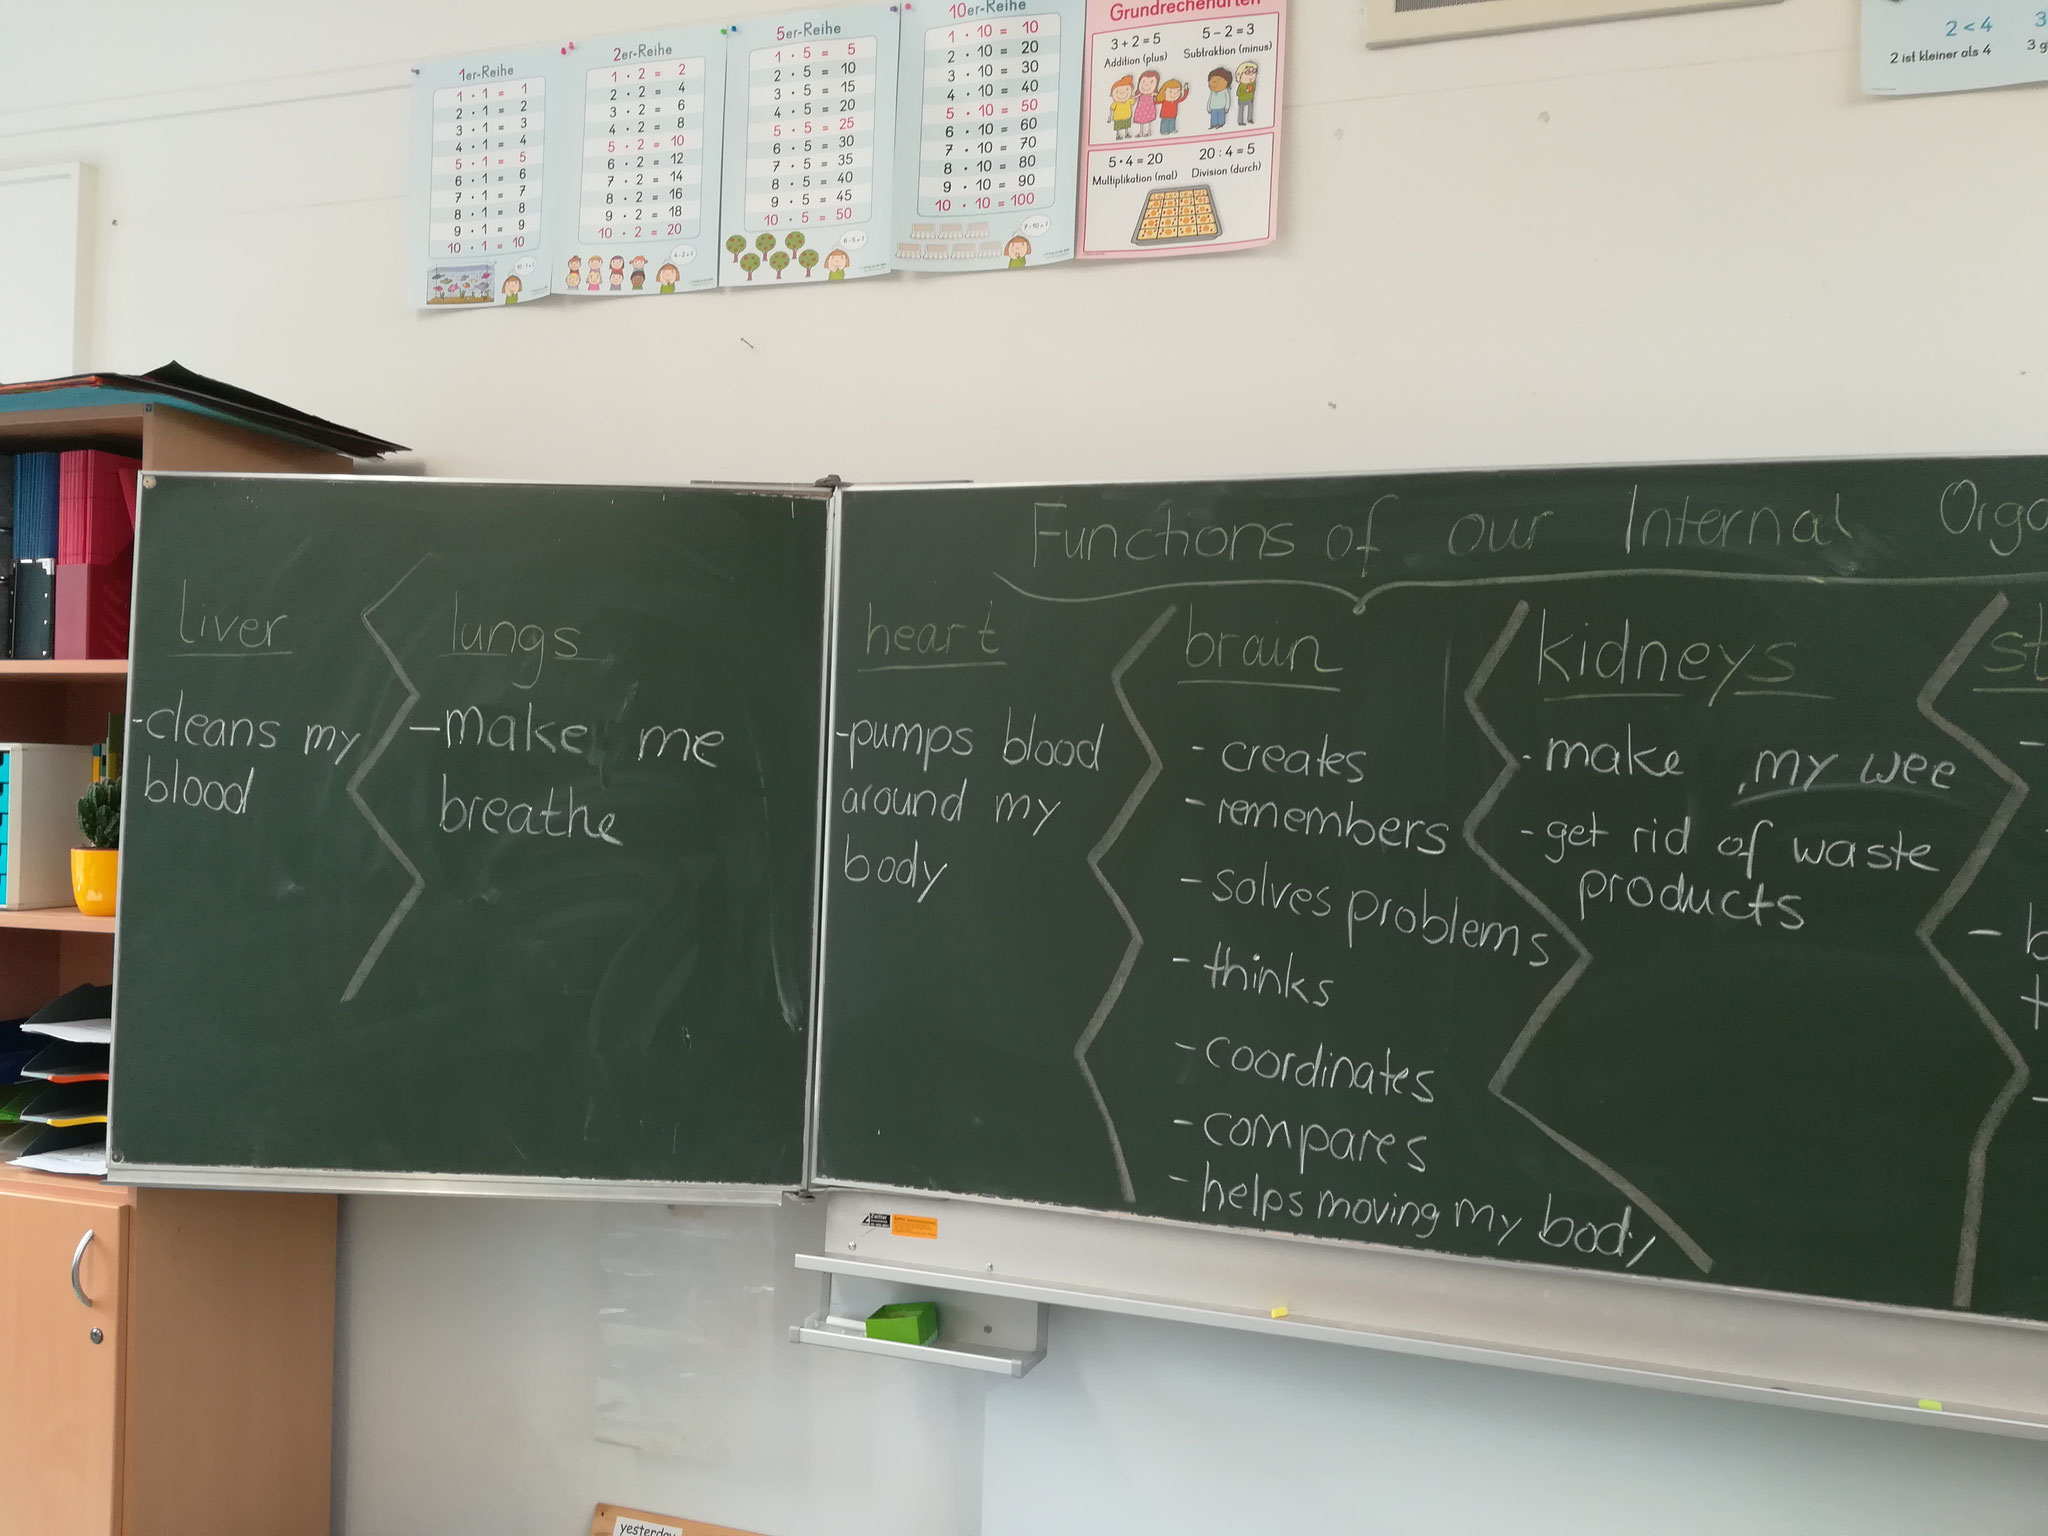 1er-Reihe
1 · 1 = 1
2 · 1 = 2
3 · 1 = 3
4 · 1 = 4
5 · 1 = 5
6 · 1 = 6
7 · 1 = 7
8 · 1 = 8
9 · 1 = 9
10 · 1 = 10
2er-Reihe
1 · 2 = 2
2 · 2 = 4
3 · 2 = 6
4 · 2 = 8
5 · 2 = 10
6 · 2 = 12
7 · 2 = 14
8 · 2 = 16
9 · 2 = 18
10 · 2 = 20
5er-Reihe
1 · 5 = 5
2 · 5 = 10
3 · 5 = 15
4 · 5 = 20
5 · 5 = 25
6 · 5 = 30
7 · 5 = 35
8 · 5 = 40
9 · 5 = 45
10 · 5 = 50
10er-Reihe
1 · 10 = 10
2 · 10 = 20
3 · 10 = 30
4 · 10 = 40
5 · 10 = 50
6 · 10 = 60
7 · 10 = 70
8 · 10 = 80
9 · 10 = 90
10 · 10 = 100
Grundrechenarten
3 + 2 = 5
Addition (plus)
5 - 2 = 3
Subtraktion (minus)
5 · 4 = 20
Multiplikation (mal)
20 : 4 = 5
Division (durch)
2 < 4
2 ist kleiner als 4
3
3 g
Functions of our Internal Orga
liver
-cleans my
blood
lungs
-make me
breathe
heart
-pumps blood
around my
body
brain
- creates
- remembers
- solves problems
- thinks
- coordinates
- compares
- helps moving my body
kidneys
- make my wee
- get rid of waste
products
st
-
- b
t
-
yesterday